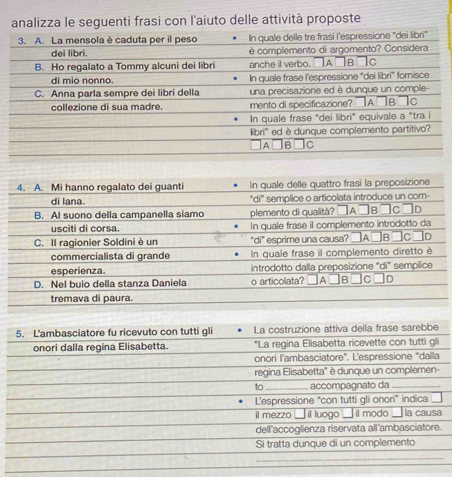 analizza le seguenti frasi con l'aiuto delle attività proposte
3. A. La mensola è caduta per il peso
dei libri.
B. Ho regalato a Tommy alcuni dei libri
di mio nonno.
C. Anna parla sempre dei libri della
collezione di sua madre.
• In quale delle tre frasi l'espressione "dei libri"
è complemento di argomento? Considera
anche il verbo. □A □B □C
• In quale frase l'espressione "dei libri" fornisce
una precisazione ed è dunque un comple-
mento di specificazione? □A □B □C
• In quale frase "dei libri" equivale a "tra i
libri" ed è dunque complemento partitivo?
□A □B □C
4. A. Mi hanno regalato dei guanti
di lana.
B. Al suono della campanella siamo
usciti di corsa.
C. Il ragionier Soldini è un
commercialista di grande
esperienza.
D. Nel buio della stanza Daniela
tremava di paura.
• In quale delle quattro frasi la preposizione
"di" semplice o articolata introduce un com-
plemento di qualità? □A □B □C □D
• In quale frase il complemento introdotto da
"di" esprime una causa? □A □B □C □D
• In quale frase il complemento diretto è
introdotto dalla preposizione "di" semplice
o articolata? □A □B □C □D
5. L'ambasciatore fu ricevuto con tutti gli
onori dalla regina Elisabetta.
• La costruzione attiva della frase sarebbe
"La regina Elisabetta ricevette con tutti gli
onori l'ambasciatore". L'espressione "dalla
regina Elisabetta" è dunque un complemen-
to ________ accompagnato da ________
• L'espressione "con tutti gli onori" indica □
il mezzo □ il luogo □ il modo □ la causa
dell'accoglienza riservata all'ambasciatore.
Si tratta dunque di un complemento
________